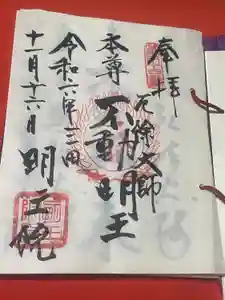 奉拝
元三大師
本尊
不動明王
令和六年
十一月十六日
明王院